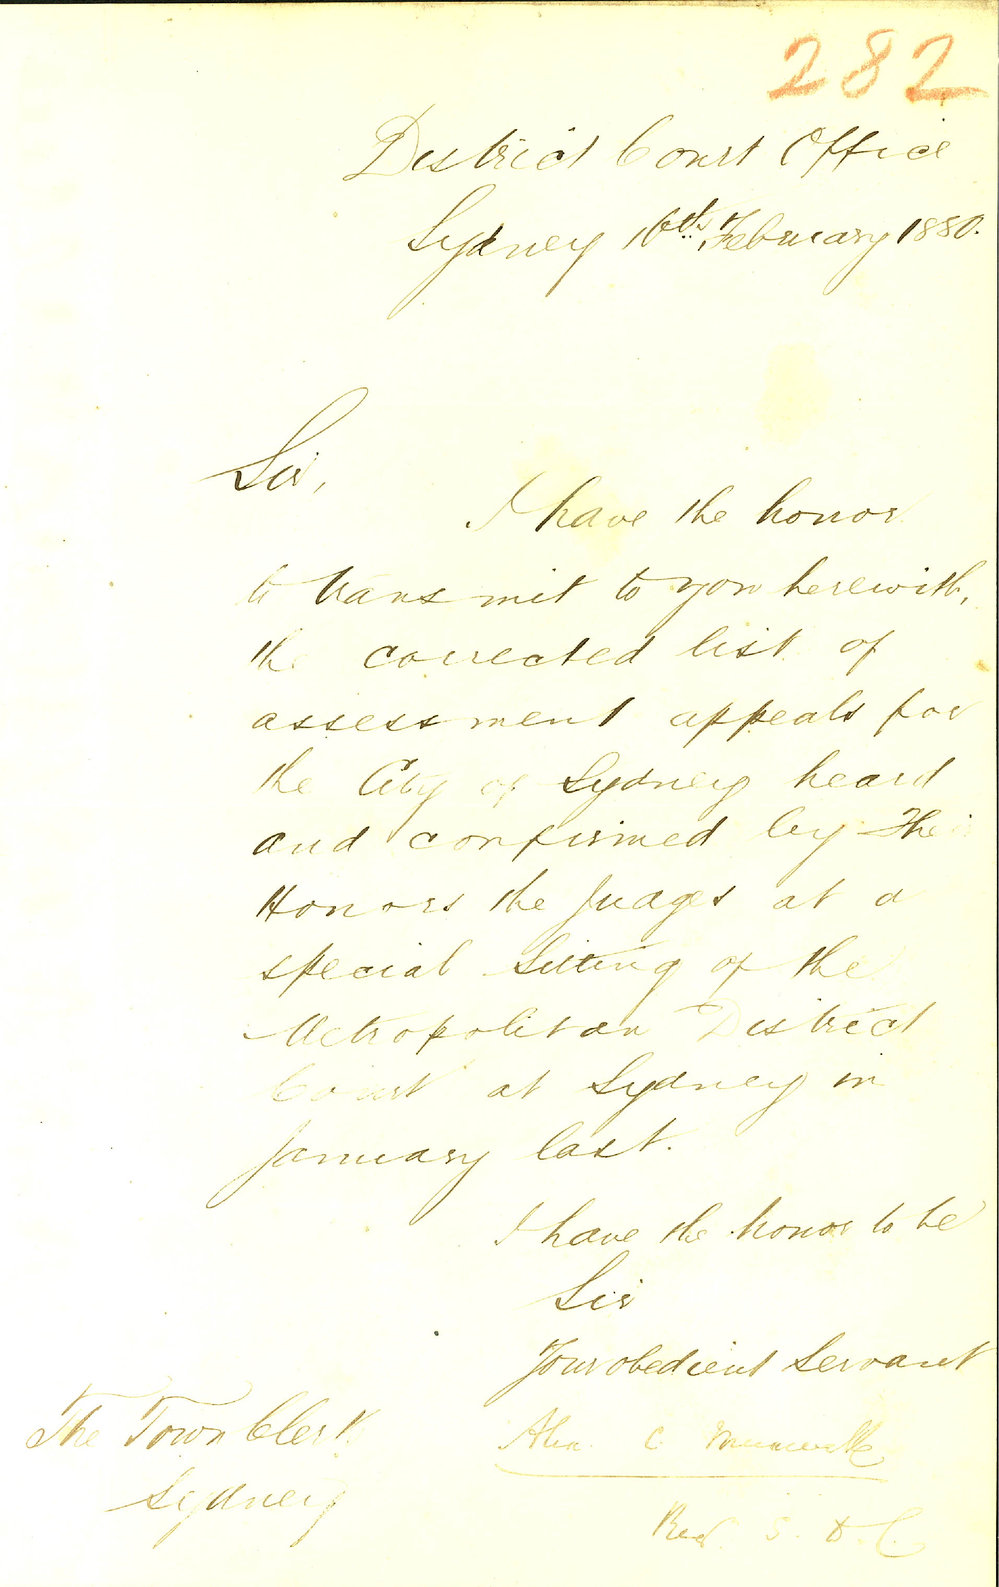 282
District Court Office
Sydney 16th February 1880.
Sir,
I have the honor
to transmit to you herewith,
the corrected list of
assessment appeals for
the City of Sydney heard
and confirmed by Their
Honors the Judges at a
special Sitting of the
Metropolitan District
Court at Sydney in
January last.
I have the honor to be
Sir
Your obedient Servant
C
The Town Clerk
Sydney
S. D. C.